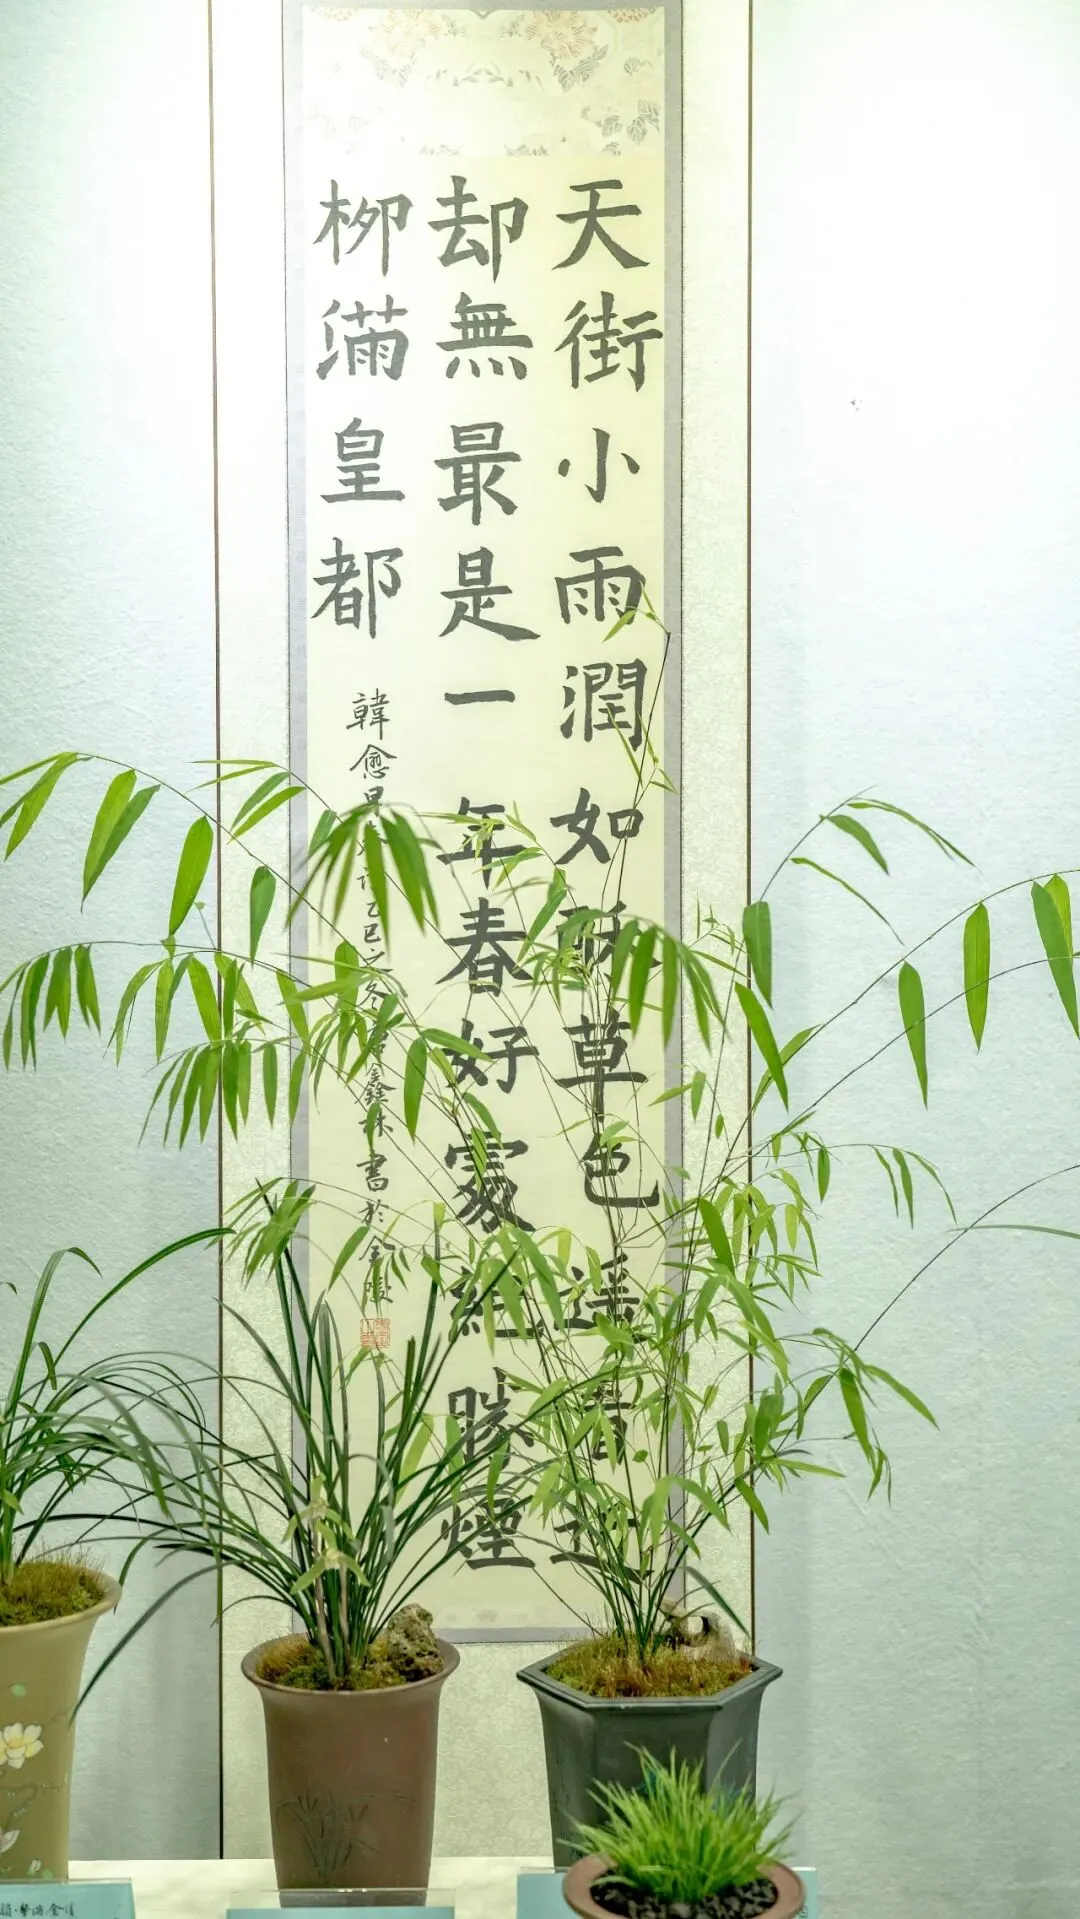 天街小雨潤如酥草色遥看近
却無最是一年春好處絕勝煙
柳滿皇都
韓愈早春詩乙巳之冬 鑫林書於金陵